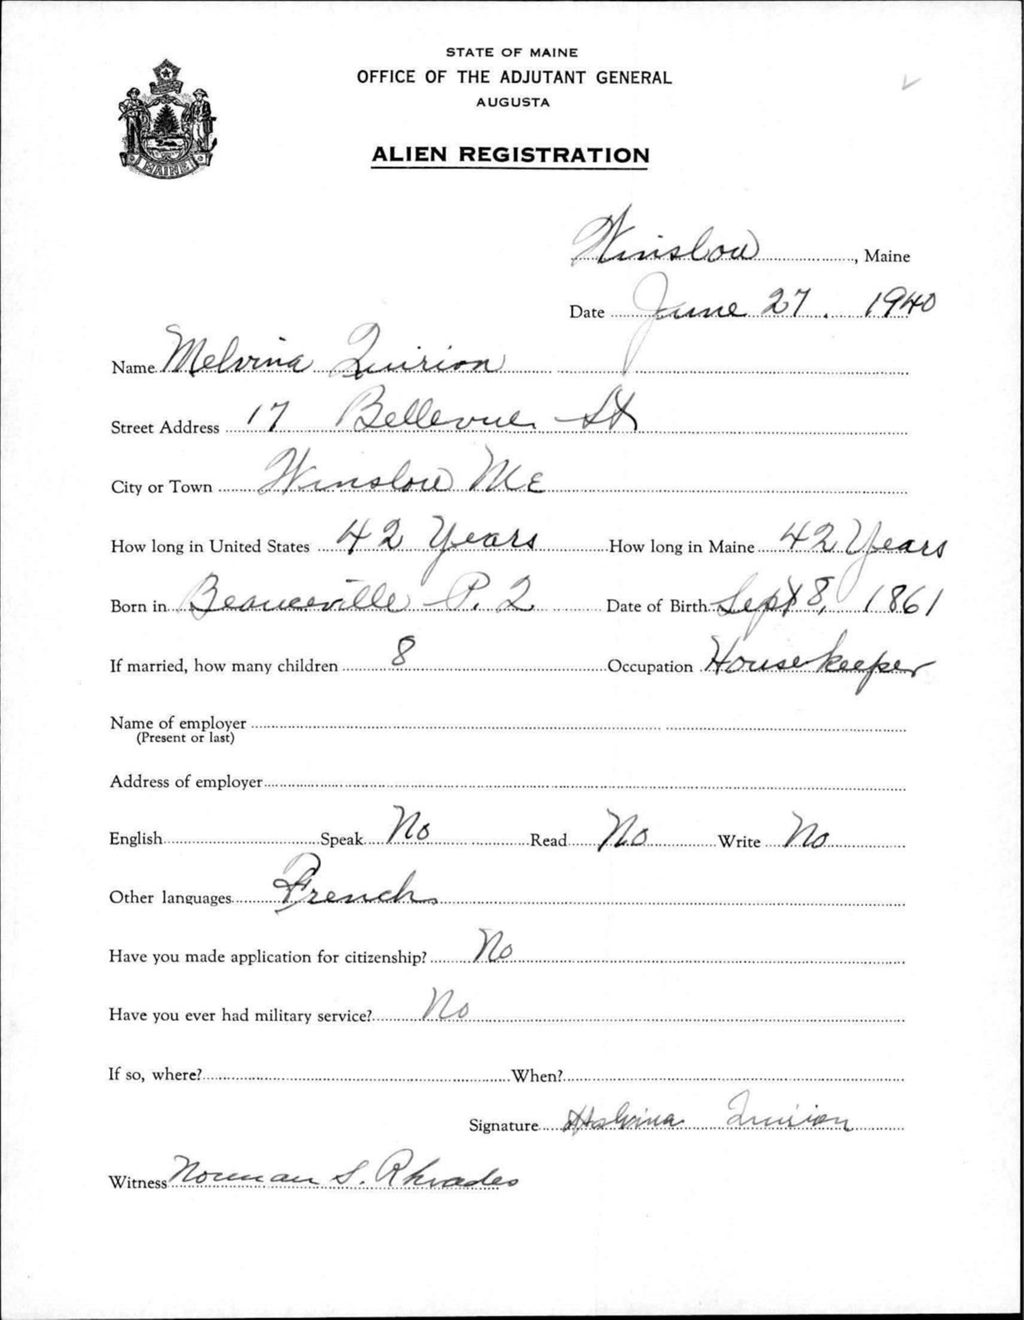 STATE OF MAINE
OFFICE OF THE ADJUTANT GENERAL
AUGUSTA
ALIEN REGISTRATION
MAINE
Winslow, Maine
Date June 27. 1940
Name Melvina Quirion
Street Address 17 Bellevue St
City or Town Winslow Me
How long in United States 42 Years How long in Maine 42 Years
Born in Beauceville P. Q Date of Birth Sept 8, 1861
If married, how many children 8 Occupation Housekeeper
Name of employer
(Present or last)
Address of employer
English Speak No Read No Write No
Other languages French
Have you made application for citizenship? No
Have you ever had military service? No
If so, where? When?
Signature Melvina Quirion
Witness Norman S. Rhoades